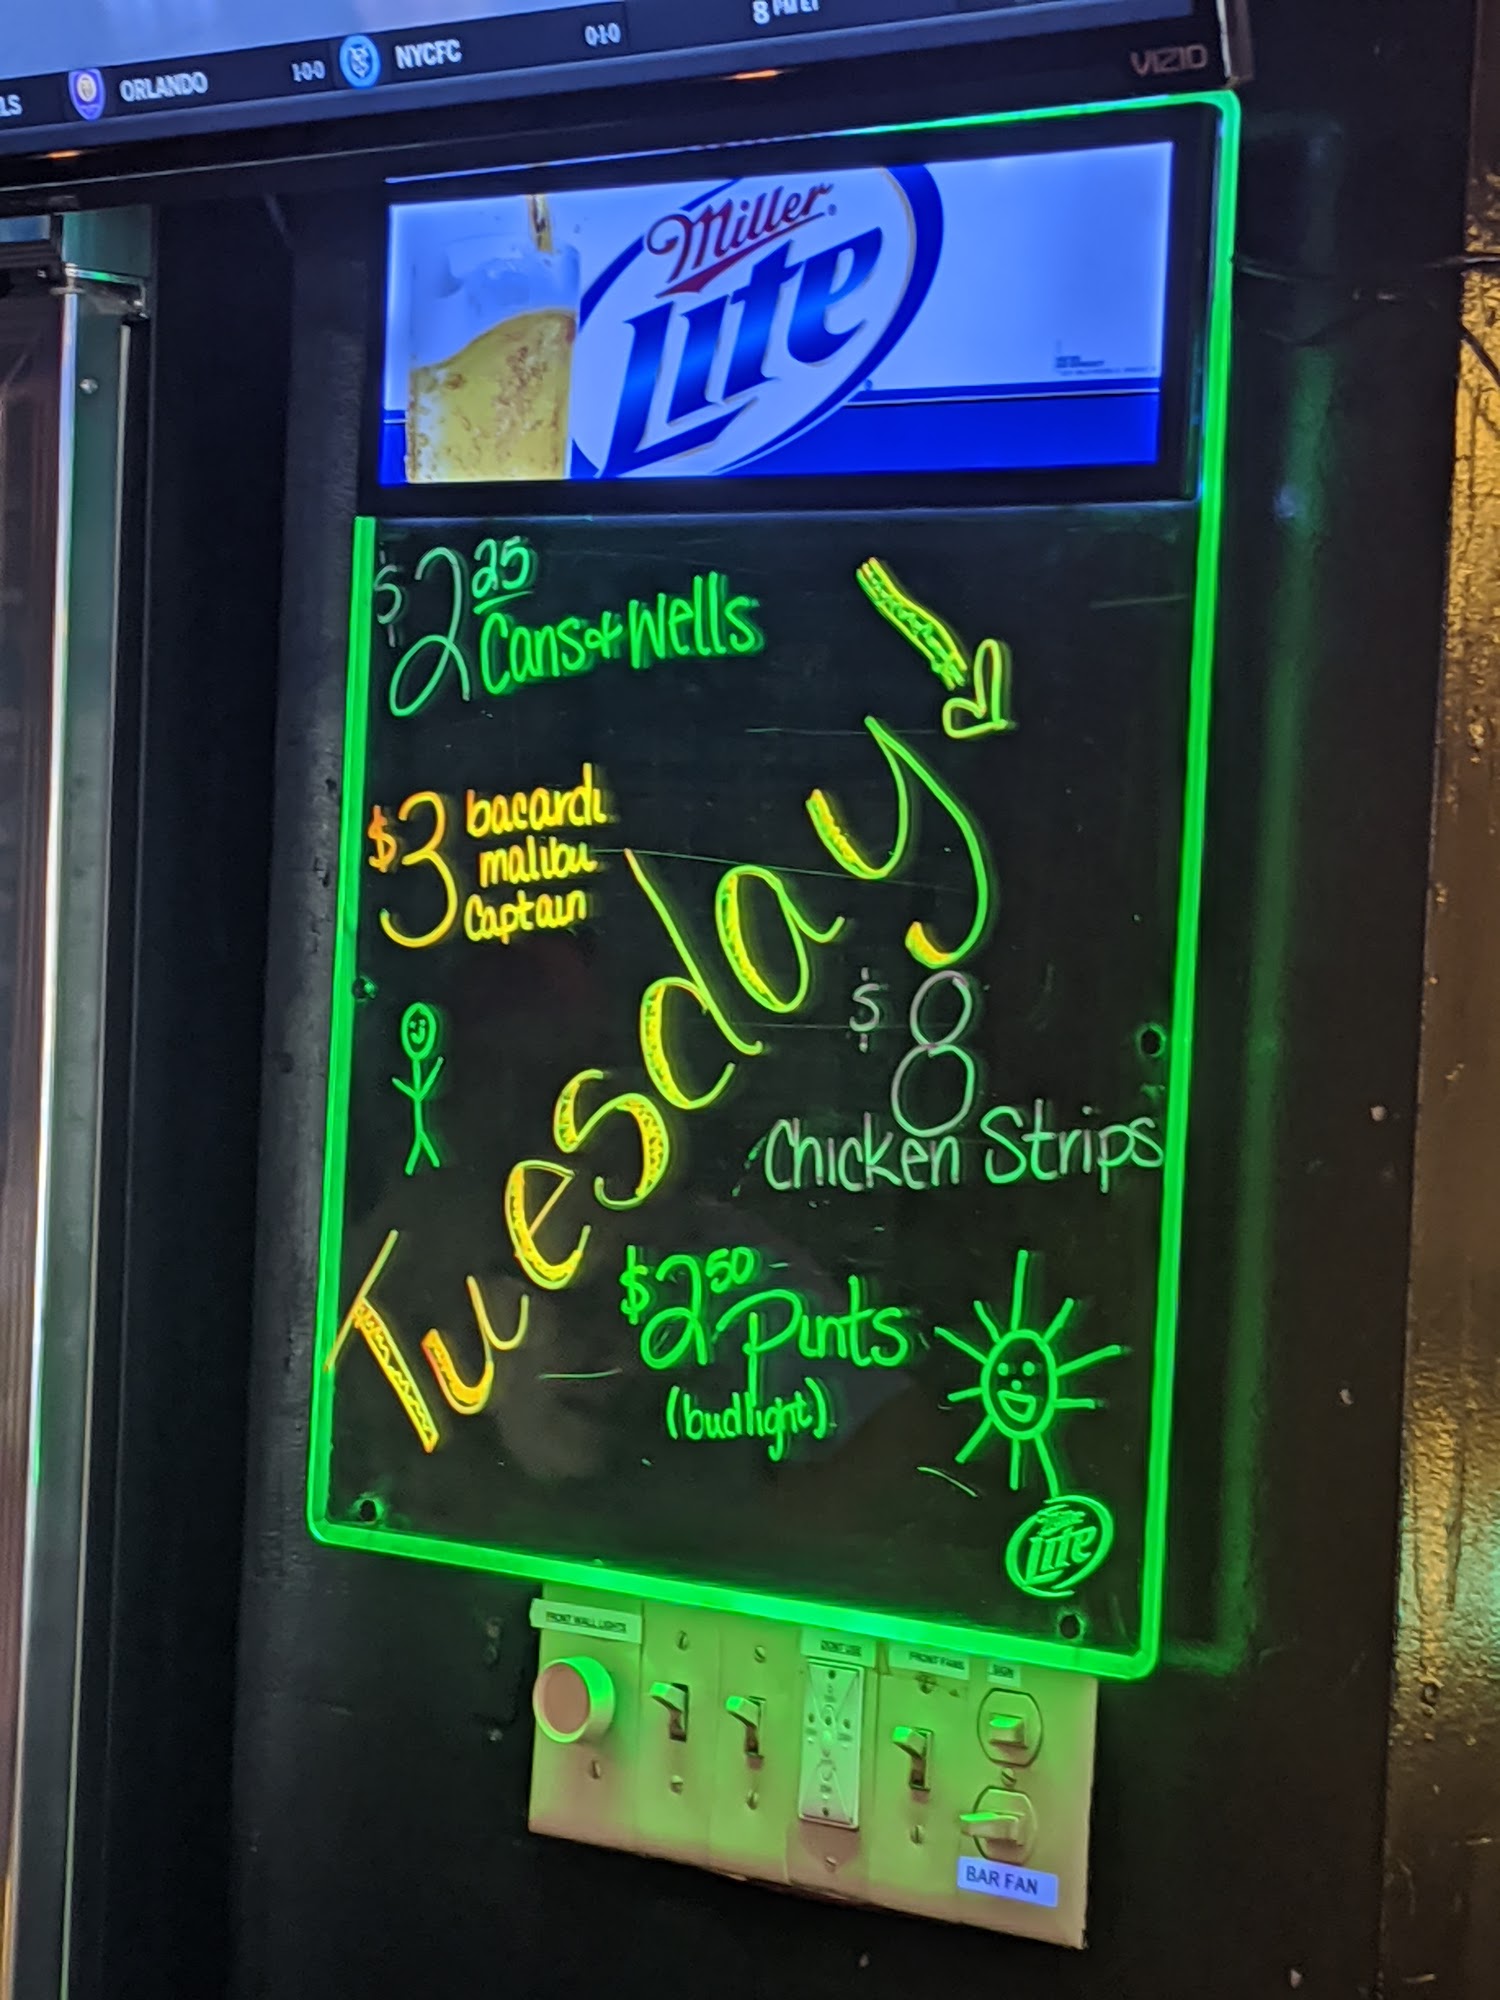 LS
ORLANDO
1-0-0
NYCFC
0-1-0
8 PM ET
VIZIO
Miller
Lite
$2 25
Cans & Wells
$3 bacardi
malibu
Captain
Tuesday
$8
Chicken Strips
$2 50 Pints
(budlight)
Lite
FRONT WALL LIGHTS
DONT USE
FRONT FANS
SIGN
BAR FAN